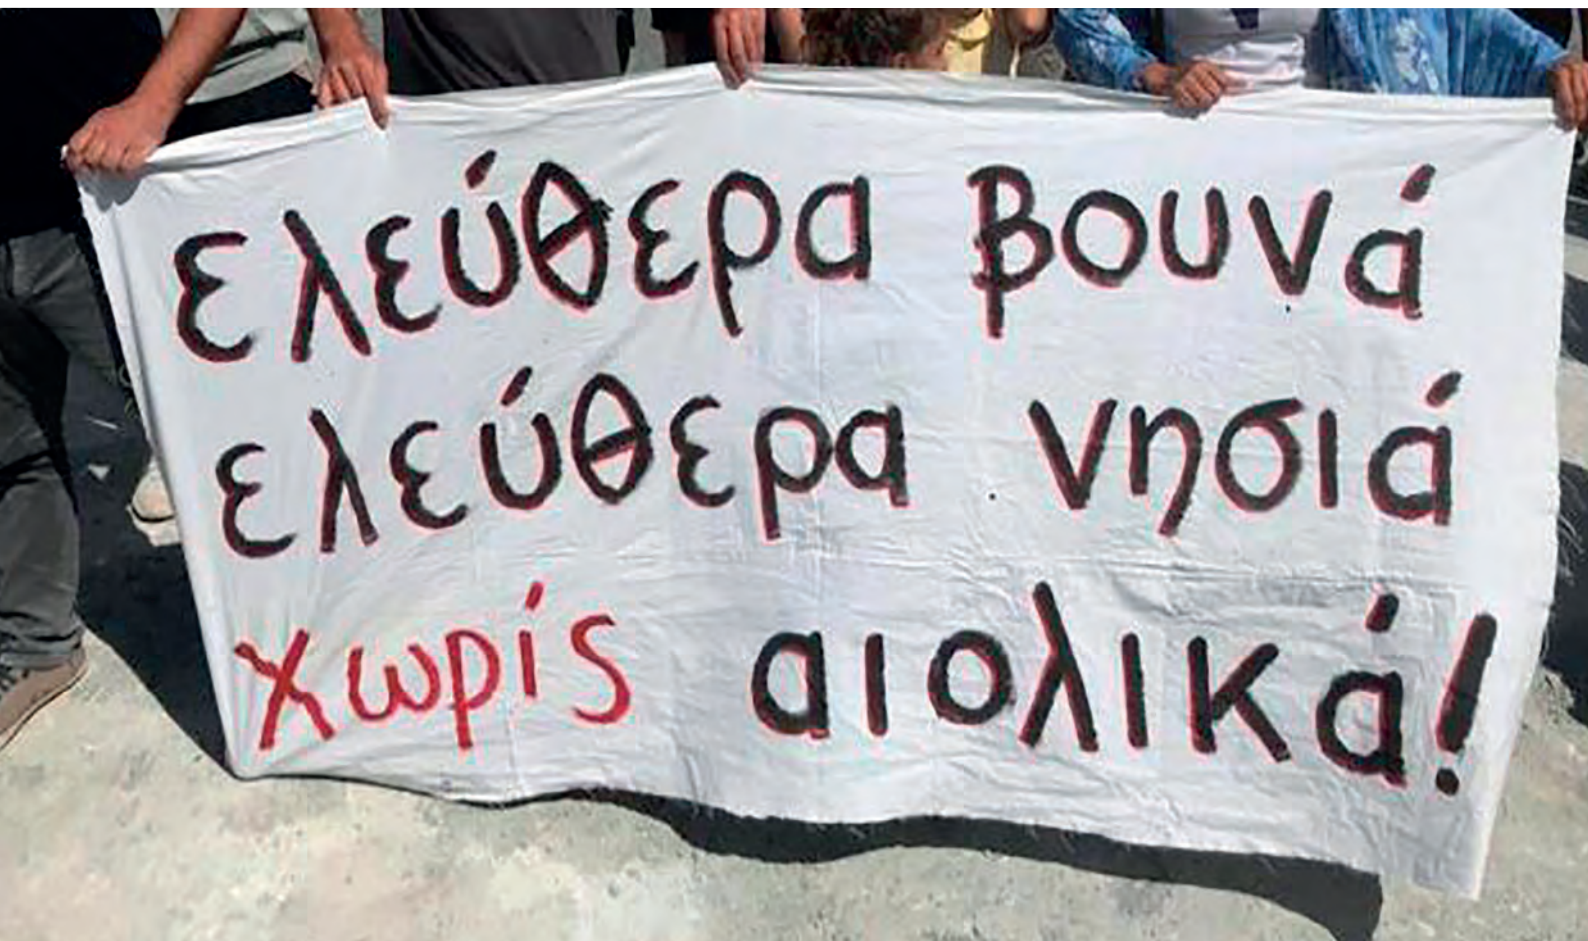 ελεύθερα βουνά
ελεύθερα νησιά
χωρίς αιολικά!